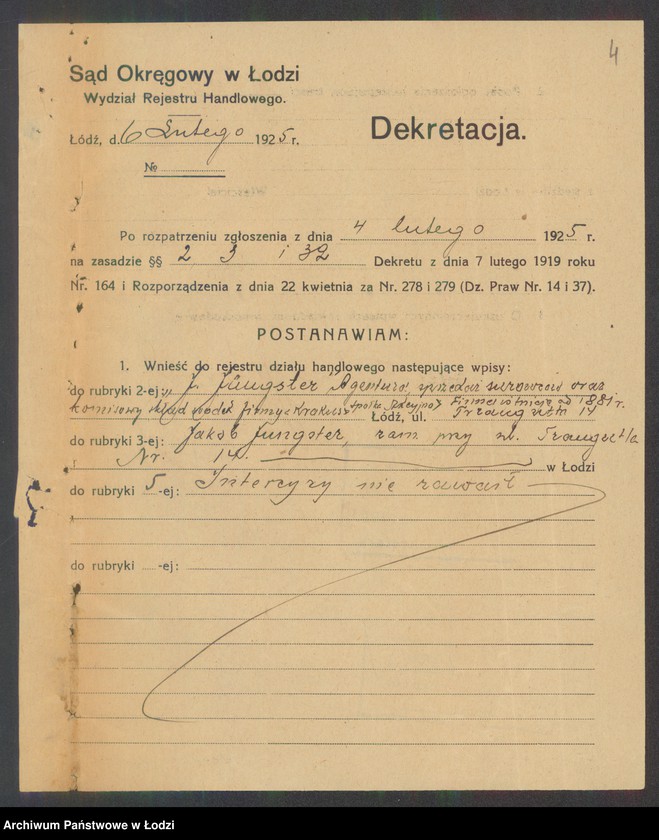 4
Sąd Okręgowy w Łodzi
Wydział Rejestru Handlowego.
Łódź, d. 6 Lutego 1925 r.
Dekretacja.
№
Po rozpatrzeniu zgłoszenia z dnia 4 lutego 1925 r.
na zasadzie §§ 2 3 i 32 Dekretu z dnia 7 lutego 1919 roku
Nr. 164 i Rozporządzenia z dnia 22 kwietnia za Nr. 278 i 279 (Dz. Praw Nr. 14 i 37).
POSTANAWIAM:
1. Wnieść do rejestru działu handlowego następujące wpisy:
do rubryki 2-ej: „J. Jungster Agentura, sprzedaż surowców oraz
komisowy skład wódek firmy „Krakus" spółka Akcyjna" Firma istnieje od 1881 r.
Łódź, ul. Traugutta 14
do rubryki 3-ej: Jakób Jungster, zam. przy ul. Traugutta
Nr. 14. w Łodzi
do rubryki 5-ej: Intercyzy nie zawarł
do rubryki -ej:
Archiwum Państwowe w Łodzi